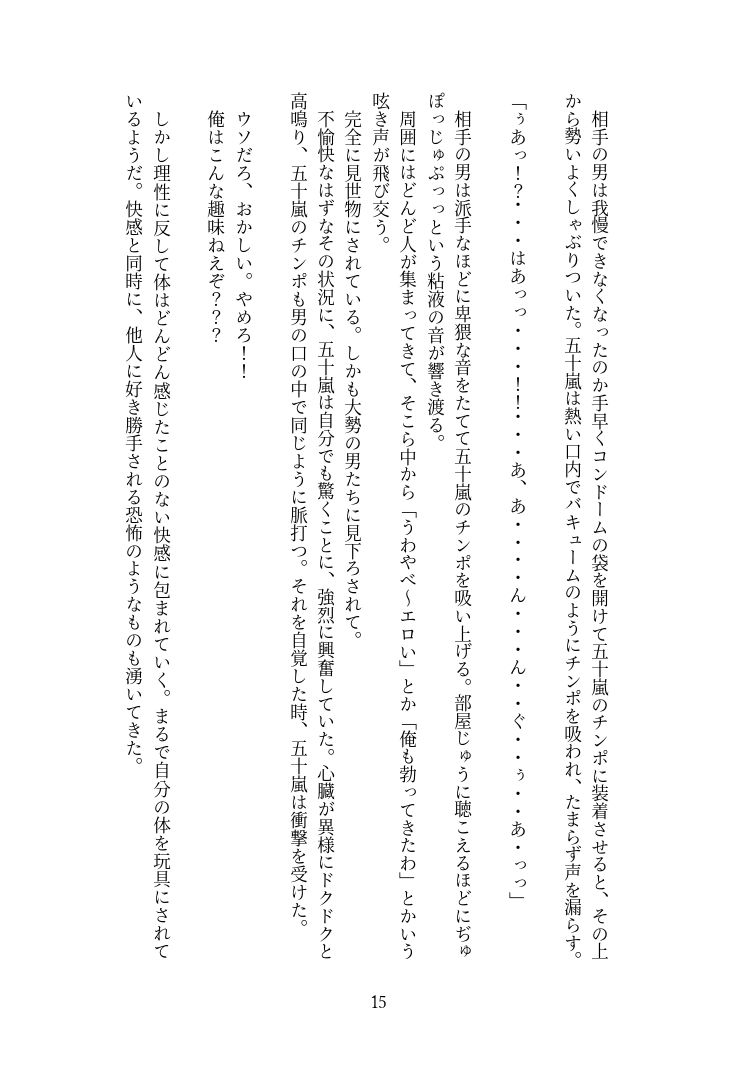 相手の男は我慢できなくなったのか手早くコンドームの袋を開けて五十嵐のチンポに装着させると、その上
から勢いよくしゃぶりついた。五十嵐は熱い口内でバキュームのようにチンポを吸われ、たまらず声を漏らす。
「ぅあっ！？・・・はあっっ・・・！！・・・あ、あ・・・・ん・・・ん・・ぐ・・ぅ・・あ・っっ」
　相手の男は派手なほどに卑猥な音をたてて五十嵐のチンポを吸い上げる。部屋じゅうに聴こえるほどにぢゅ
ぽっじゅぷっっという粘液の音が響き渡る。
　周囲にはどんど人が集まってきて、そこら中から「うわやべ〜エロい」とか「俺も勃ってきたわ」とかいう
呟き声が飛び交う。
　完全に見世物にされている。しかも大勢の男たちに見下ろされて。
　不愉快なはずなその状況に、五十嵐は自分でも驚くことに、強烈に興奮していた。心臓が異様にドクドクと
高鳴り、五十嵐のチンポも男の口の中で同じように脈打つ。それを自覚した時、五十嵐は衝撃を受けた。
　ウソだろ、おかしい。やめろ！！
　俺はこんな趣味ねえぞ？？？
　しかし理性に反して体はどんどん感じたことのない快感に包まれていく。まるで自分の体を玩具にされて
いるようだ。快感と同時に、他人に好き勝手される恐怖のようなものも湧いてきた。
15